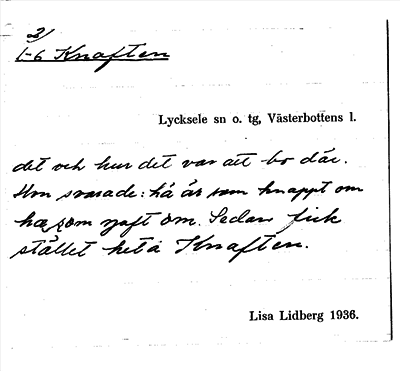 2/
1-6 Knaften
Lycksele sn o. tg, Västerbottens l.
det och hur det var att bo där.
Hon svarade: hä är som knappt om
hæ som naft om. Sedan fick
stället heta Knaften.
Lisa Lidberg 1936.